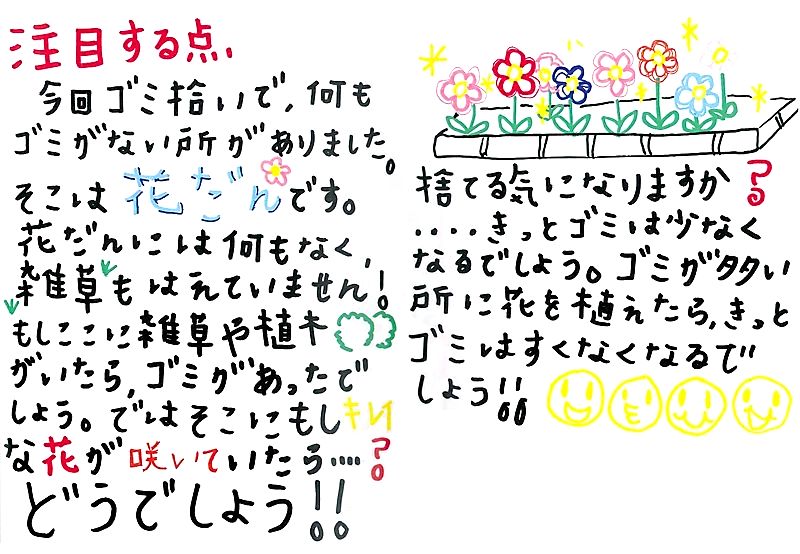 注目する点.
今回ゴミ拾いで、何も
ゴミがない所がありました。
そこは花だんです。
花だんには何もなく、
雑草もはえていません!
もしここに雑草や植木
がいたら、ゴミがあったで
しょう。ではそこにもしキレイ
な花が咲いていたら……?
どうでしょう!!
捨てる気になりますか?
....きっとゴミは少なく
なるでしょう。ゴミが多い
所に花を植えたら、きっと
ゴミはすくなくなるで
しょう!!